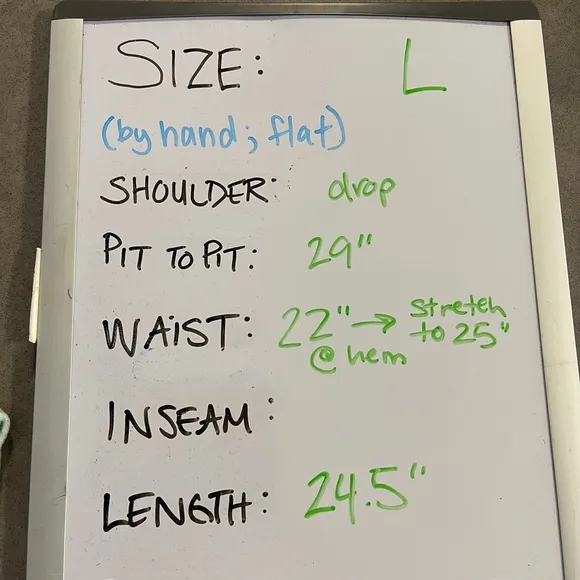 SIZE: L
(by hand; flat)
SHOULDER: drop
PIT TO PIT: 29"
WAIST: 22" → stretch to 25"
@ hem
INSEAM:
LENGTH: 24.5"